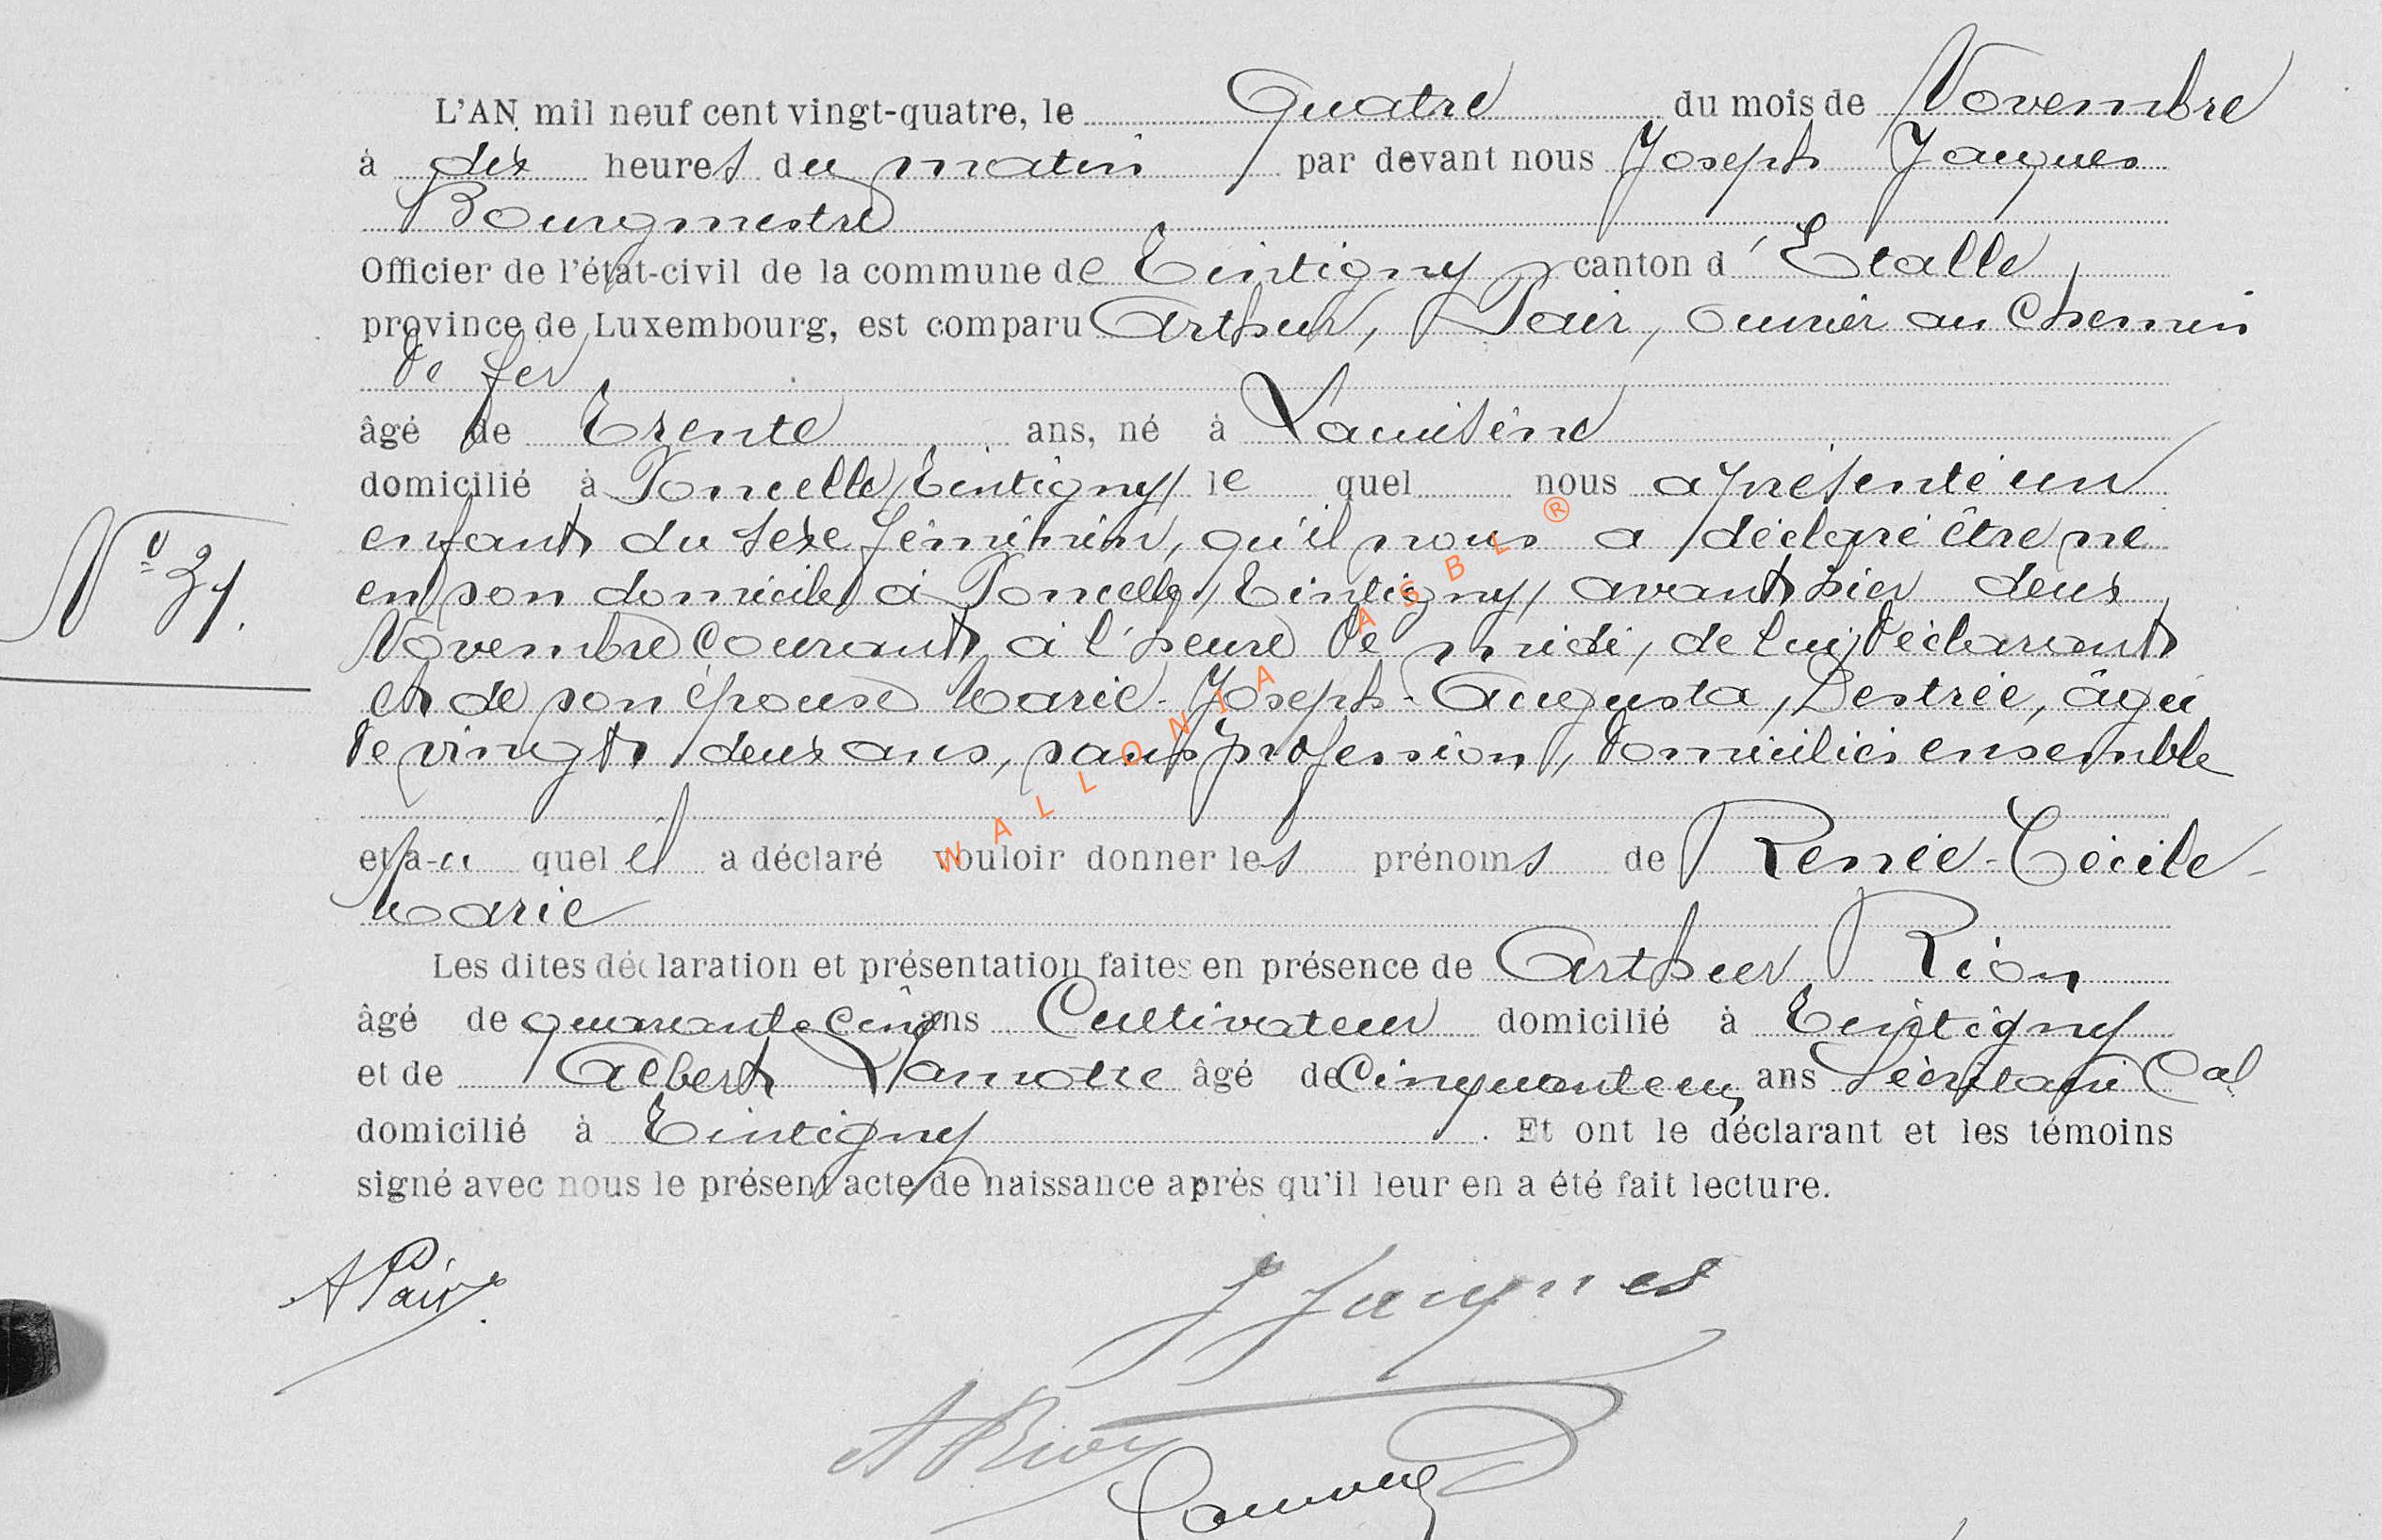 L'AN mil neuf cent vingt-quatre, le Quatre du mois de Novembre
à dix heures du matin par devant nous Joseph Jacques
Bourgmestre
Officier de l'état-civil de la commune de Tintigny canton d'Etalle
province de Luxembourg, est comparu Arthur, Pair, ouvrier au Chemin
de fer
âgé de Trente ans, né à
domicilié à Poncelle / Tintigny / le quel nous a présenté un
enfant du sexe féminin, qu'il nous a déclaré être né
N° 31.
en son domicile à Poncelle / Tintigny / avant hier deux
Novembre courant à l'heure de midi, de lui déclarant
et de son épouse Marie-Joseph-Augusta, Destrée, âgée
de vingt deux ans, sans profession, domiciliés ensemble
et au quel il a déclaré vouloir donner les prénoms de Renée-Cécile-
Marie
Les dites déclaration et présentation faites en présence de Arthur Rion
âgé de quarante cinq ans Cultivateur domicilié à Tintigny
et de Albert Lamotte âgé de Cinquante un ans Secrétaire Cal
domicilié à Tintigny. Et ont le déclarant et les témoins
signé avec nous le présent acte de naissance après qu'il leur en a été fait lecture.
A Pair
J Jacques
A Rion
WALLONIA ASBL ®